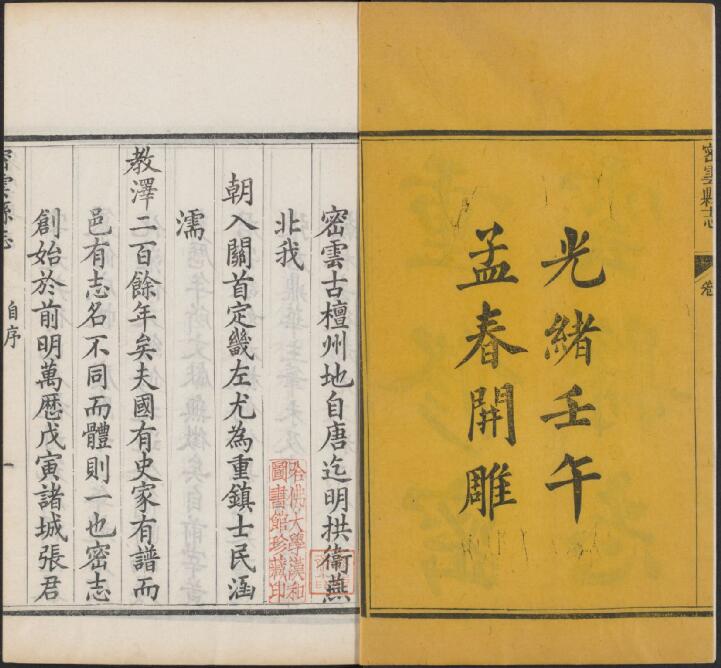 密雲縣志
卷
光緒壬午
孟春開雕
密雲古檀州地自唐迄明拱衞燕
北我
朝入關首定畿左尤為重鎮士民涵
濡
教澤二百餘年矣夫國有史家有譜而
邑有志名不同而體則一也密志
創始於前明萬曆戊寅諸城張君
密雲縣志
自序
一
哈佛大學漢和
圖書館珍藏印